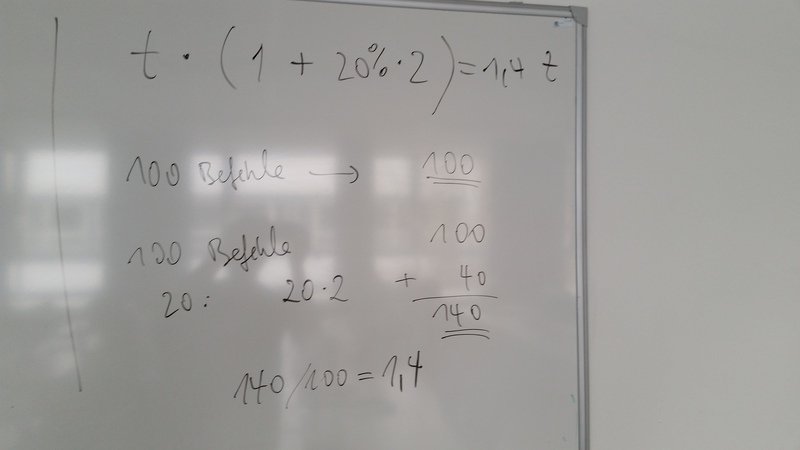 t · (1 + 20% · 2) = 1,4 t
100 Befehle → 100
100 Befehle 100
20: 20·2 + 40
140
140/100 = 1,4